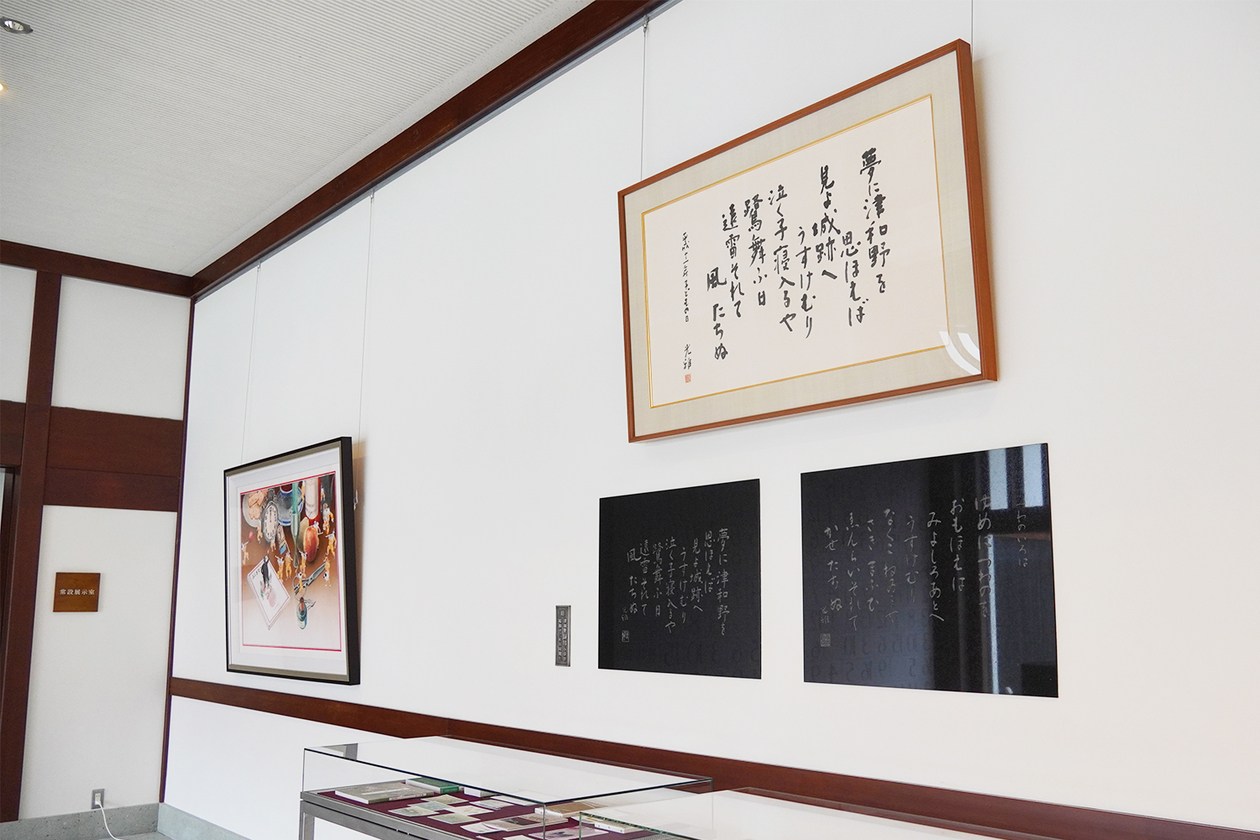 夢に津和野を
思ほえば
見よ城跡へ
うすけむり
泣く子寝入るや
鷺舞ふ日
遠雷それて
風たちぬ
光雅
夢に津和野を
思ほえば
見よ城跡へ
うすけむり
泣く子寝入るや
鷺舞ふ日
遠雷それて
風たちぬ
つわのいろは
ゆめにつわのを
おもほえば
みよしろあとへ
うすけむり
なくこねいるや
さきまふひ
ゑんらいそれて
かせたちぬ
常設展示室